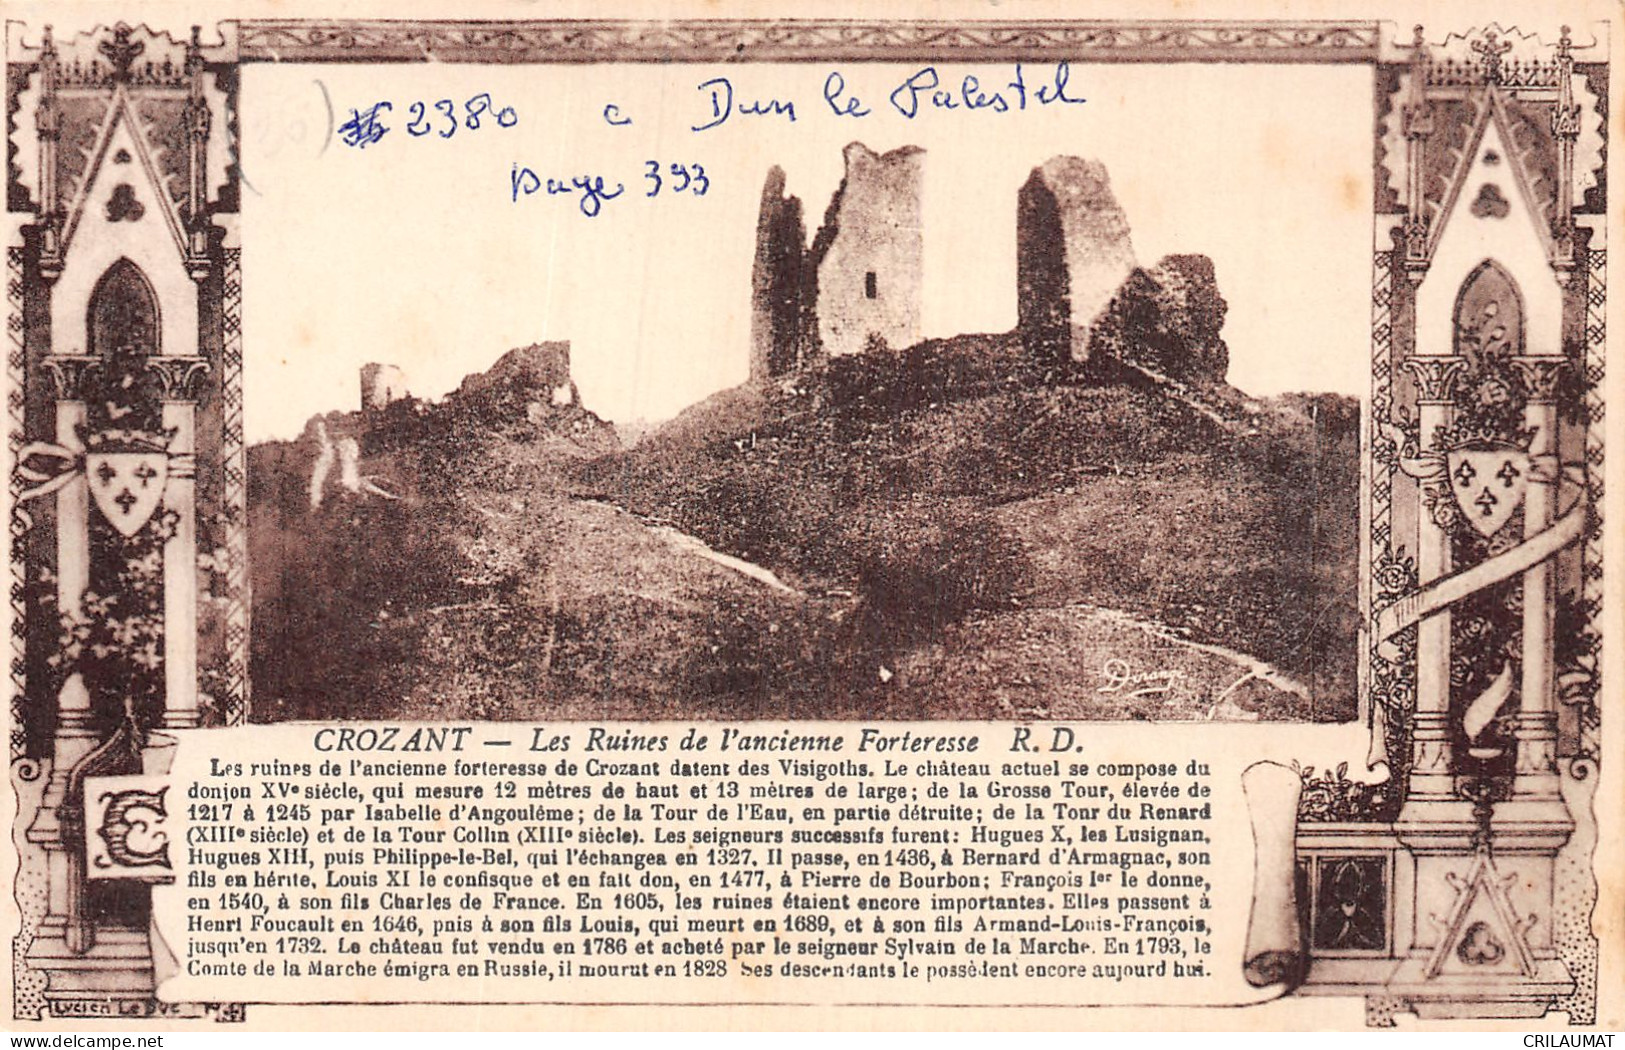 2380 a Dun le Palestel
page 393
Dérange
CROZANT — Les Ruines de l'ancienne Forteresse R. D.
Les ruines de l'ancienne forteresse de Crozant datent des Visigoths. Le château actuel se compose du
donjon XVe siècle, qui mesure 12 mètres de haut et 13 mètres de large; de la Grosse Tour, élevée de
1217 à 1245 par Isabelle d'Angoulême; de la Tour de l'Eau, en partie détruite; de la Tour du Renard
(XIIIe siècle) et de la Tour Collin (XIIIe siècle). Les seigneurs successifs furent: Hugues X, les Lusignan,
Hugues XIII, puis Philippe-le-Bel, qui l'échangea en 1327. Il passe, en 1436, à Bernard d'Armagnac, son
fils en hérite, Louis XI le confisque et en fait don, en 1477, à Pierre de Bourbon; François Ier le donne,
en 1540, à son fils Charles de France. En 1605, les ruines étaient encore importantes. Elles passent à
Henri Foucault en 1646, puis à son fils Louis, qui meurt en 1689, et à son fils Armand-Louis-François,
jusqu'en 1732. Le château fut vendu en 1786 et acheté par le seigneur Sylvain de la Marche. En 1793, le
Comte de la Marche émigra en Russie, il mourut en 1828 Ses descendants le possèdent encore aujourd hui.
C
LUCIEN LE DUC
CRILAUMAT